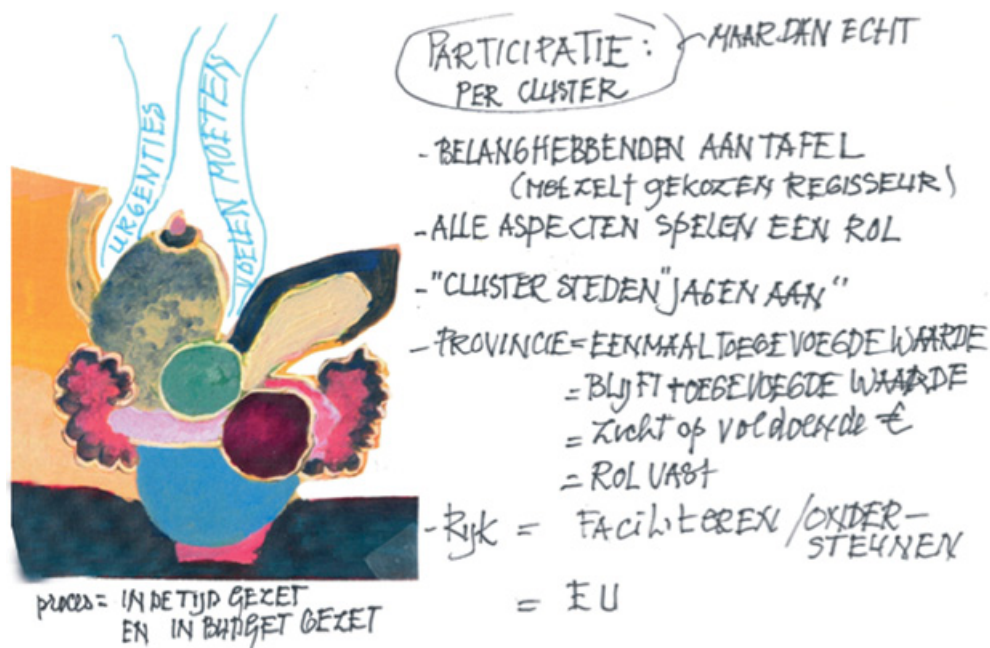 URGENTIES
VOELEN MOETEN
PARTICIPATIE:
PER CLUSTER
MAAR DAN ECHT
- BELANGHEBBENDEN AAN TAFEL
(MET ZELF GEKOZEN REGISSEUR)
- ALLE ASPECTEN SPELEN EEN ROL
- "CLUSTER STEDEN" JAGEN AAN"
- PROVINCIE = EENMAAL TOEGEVOEGDE WAARDE
= BLIJFT TOEGEVOEGDE WAARDE
= Zicht op voldoende €
= ROL VAST
- Rijk = FACILITEREN / ONDER-
STEUNEN
= EU
proces = IN DE TIJD GEZET
EN IN BUDGET GEZET